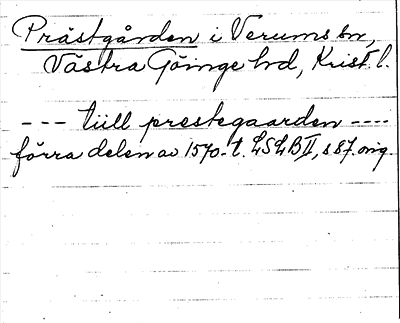 Prästgården i Verums sn,
Västra Göinge hd, Krist. l.
--- tiill prestegaarden ----
förra delen av 1570-t. LSLB II, s 87. orig.